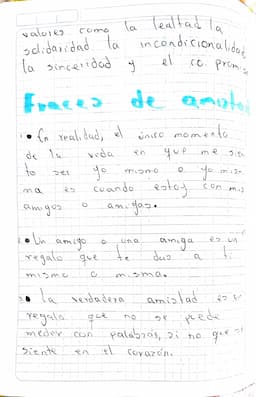 valores como la lealtad la
solidaridad la incondicionalidad
la sinceridad y el co promiso
Fraces de amista
• En realidad, el único momento
de la veda en que me sien
to ser yo mismo o yo mis
ma es cuando estoy con mis
amigos o amigas.
• Un amigo o una amiga es un
regalo que te das a ti
mismo o misma.
• la verdadera amistad es
regalo que no se puede
meder con palabras, si no que se
siente en el corazón.